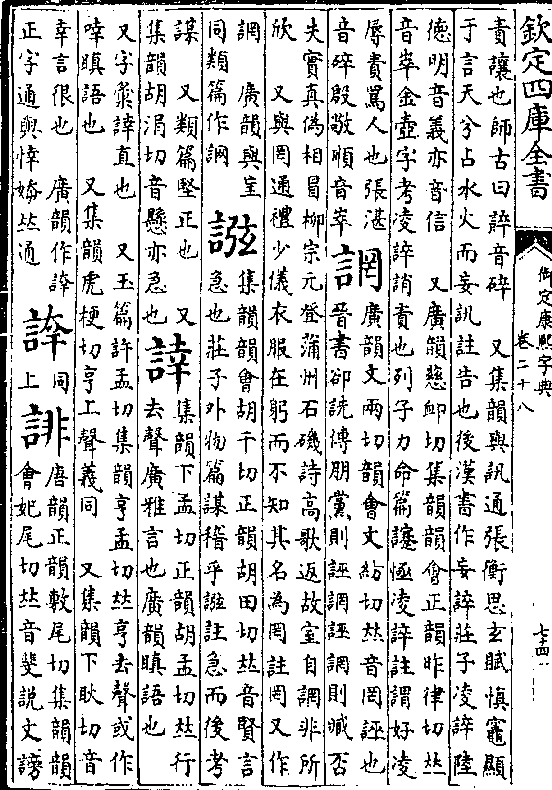 欽定四庫全書
御定康熙字典
卷二十八
七四
責讓也師古曰誶音碎　又集韻與訊通張衡思玄賦慎竈顯
于言天兮占水火而妄訊註告也後漢書作妄誶莊子凌誶陸
德明音義亦音信　又廣韻慈卹切集韻韻會正韻昨律切𠀤
音崒金壺字考凌誶誚責也列子力命篇讓㥛凌誶註謂好凌
辱責罵人也張湛音碎殷敬順音崒 誷 廣韻文兩切韻會文紡切𠀤音罔誣也晉書郤詵傳朋黨則誣誷誣誷則臧否
失實真偽相冒柳宗元登蒲州石磯詩高歌返故室自誷非所
欣　又與罔通禮少儀衣服在躬而不知其名為罔註罔又作
誷　廣韻與𡧽同類篇作詗 誸 集韻韻會胡千切正韻胡田切𠀤音賢言急也莊子外物篇謀稽乎誸註急而後考
謀　又類篇堅正也　又集韻胡涓切音懸亦急也 誶 集韻下孟切正韻胡孟切𠀤行去聲廣雅言也廣韻瞋語也
又字彙誶直也　又玉篇許孟切集韻亨孟切𠀤亨去聲或作
啈瞋語也　又集韻虎梗切亨上聲義同　又集韻下耿切音
幸言很也　廣韻作誇正字通與悻婞𠀤通 誇 同上 誹 唐韻正韻敷尾切集韻韻會妃尾切𠀤音斐説文謗